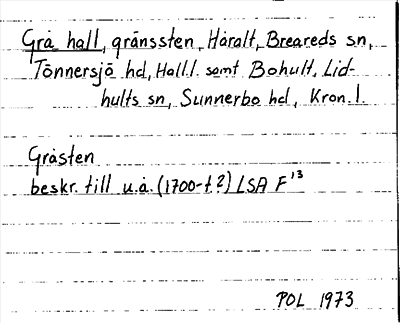 Grå hall, gränssten, Håralt, Breareds sn,
Tönnersjö hd, Hall.l. samt Bohult, Lid-
hults sn, Sunnerbo hd, Kron.l.
Gråsten
beskr. till u.å. (1700-t.?) LSA F¹³
POL 1973